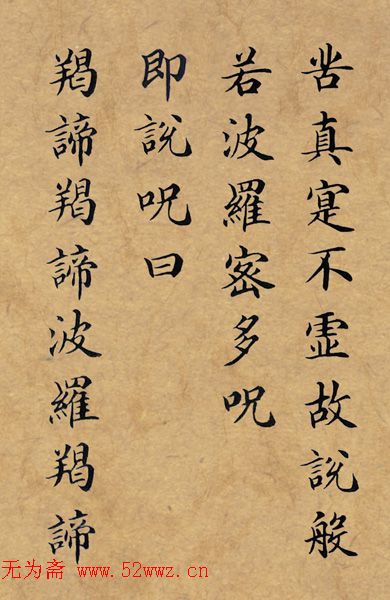 苦真寔不虛故說般
若波羅密多呪
即說呪曰
羯諦羯諦波羅羯諦
无为斋 www.52wwz.cn